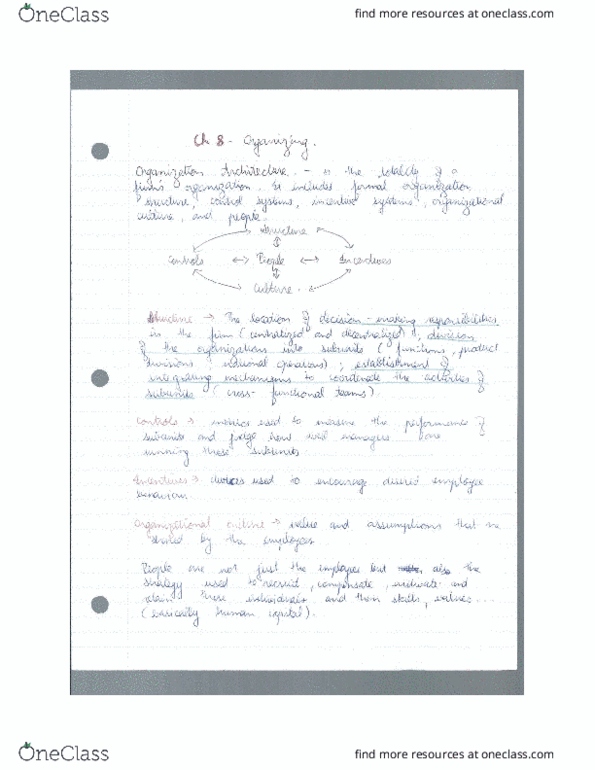 OneClass
find more resources at oneclass.com
Ch 8 - Organizing.
Organization Architecture. - is the totality of a
firm's organization. It includes formal organization
structure, control systems, incentive systems, organizational
culture, and people.
Structure
Controls ↔ People ↔ Incentives
Culture
Structure → The location of decision-making responsibilities
in the firm (centralized and decentralized), division
of the organizations into subunits (functions, product
divisions, national operations); establishment of
integrating mechanisms to coordinate the activities of
subunits (cross-functional teams).
Controls → metrics used to measure the performance of
subunits and judge how well managers are
running those subunits
Incentives → used to encourage desired employee
behaviour.
Organizational culture → value and assumptions that are
shared by the employees.
People are not just the employee but also the
strategy used to recruit, compensate, motivate and
retain these individuals and their skills, values
(basically human capital).
OneClass
find more resources at oneclass.com